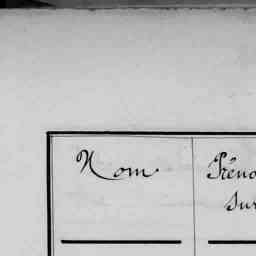 Nom
Préno
Sur